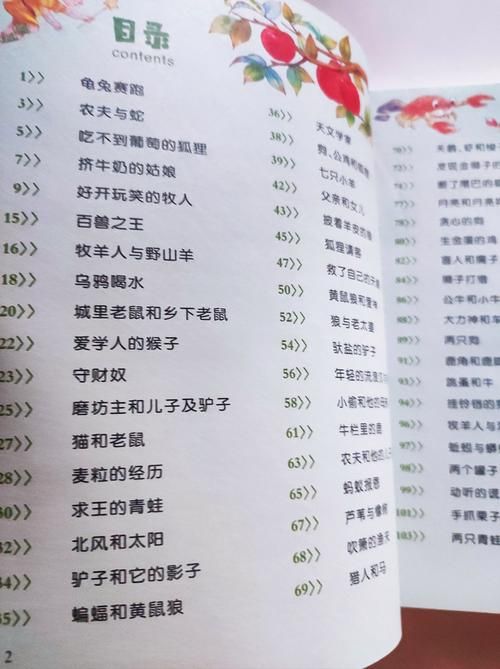 目录
contents
1》 龟兔赛跑
3》 农夫与蛇
5》 吃不到葡萄的狐狸
7》 挤牛奶的姑娘
9》 好开玩笑的牧人
15》 百兽之王
16》 牧羊人与野山羊
18》 乌鸦喝水
20》 城里老鼠和乡下老鼠
22》 爱学人的猴子
23》 守财奴
25》 磨坊主和儿子及驴子
27》 猫和老鼠
28》 麦粒的经历
30》 求王的青蛙
32》 北风和太阳
34》 驴子和它的影子
35》 蝙蝠和黄鼠狼
2
36》 天文学家
38》 狗、公鸡和
39》 七只小羊
42》 父亲和女儿
43》 披着羊皮的狼
45》 狐狸请客
47》 救了自己的
50》 黄鼠狼和爱神
52》 狼与老太婆
54》 驮盐的驴子
56》 年轻的流浪汉
58》 小偷和他的母
61》 牛栏里的鹿
63》 农夫和他的
65》 蚂蚁报恩
67》 芦苇与橡树
68》 吹箫的渔夫
69》 猎人和马
70》 天鹅、虾和梭
72》 发现金
74》 断了尾巴的
77》 月亮和月亮
78》 贪心的狗
80》 生金蛋的鸡
82》 盲人和瘸子
84》 骡子打猎
86》 公牛和小牛
88》 大力神和车
89》 两只狗
91》 鹿角和鹿
93》 跳蚤和牛
94》 挂铃铛的
96》 牧羊人与
97》 蚯蚓与蟒
98》 两个罐子
99》 动听的谎
101》 手抓栗子
103》 两只青蛙